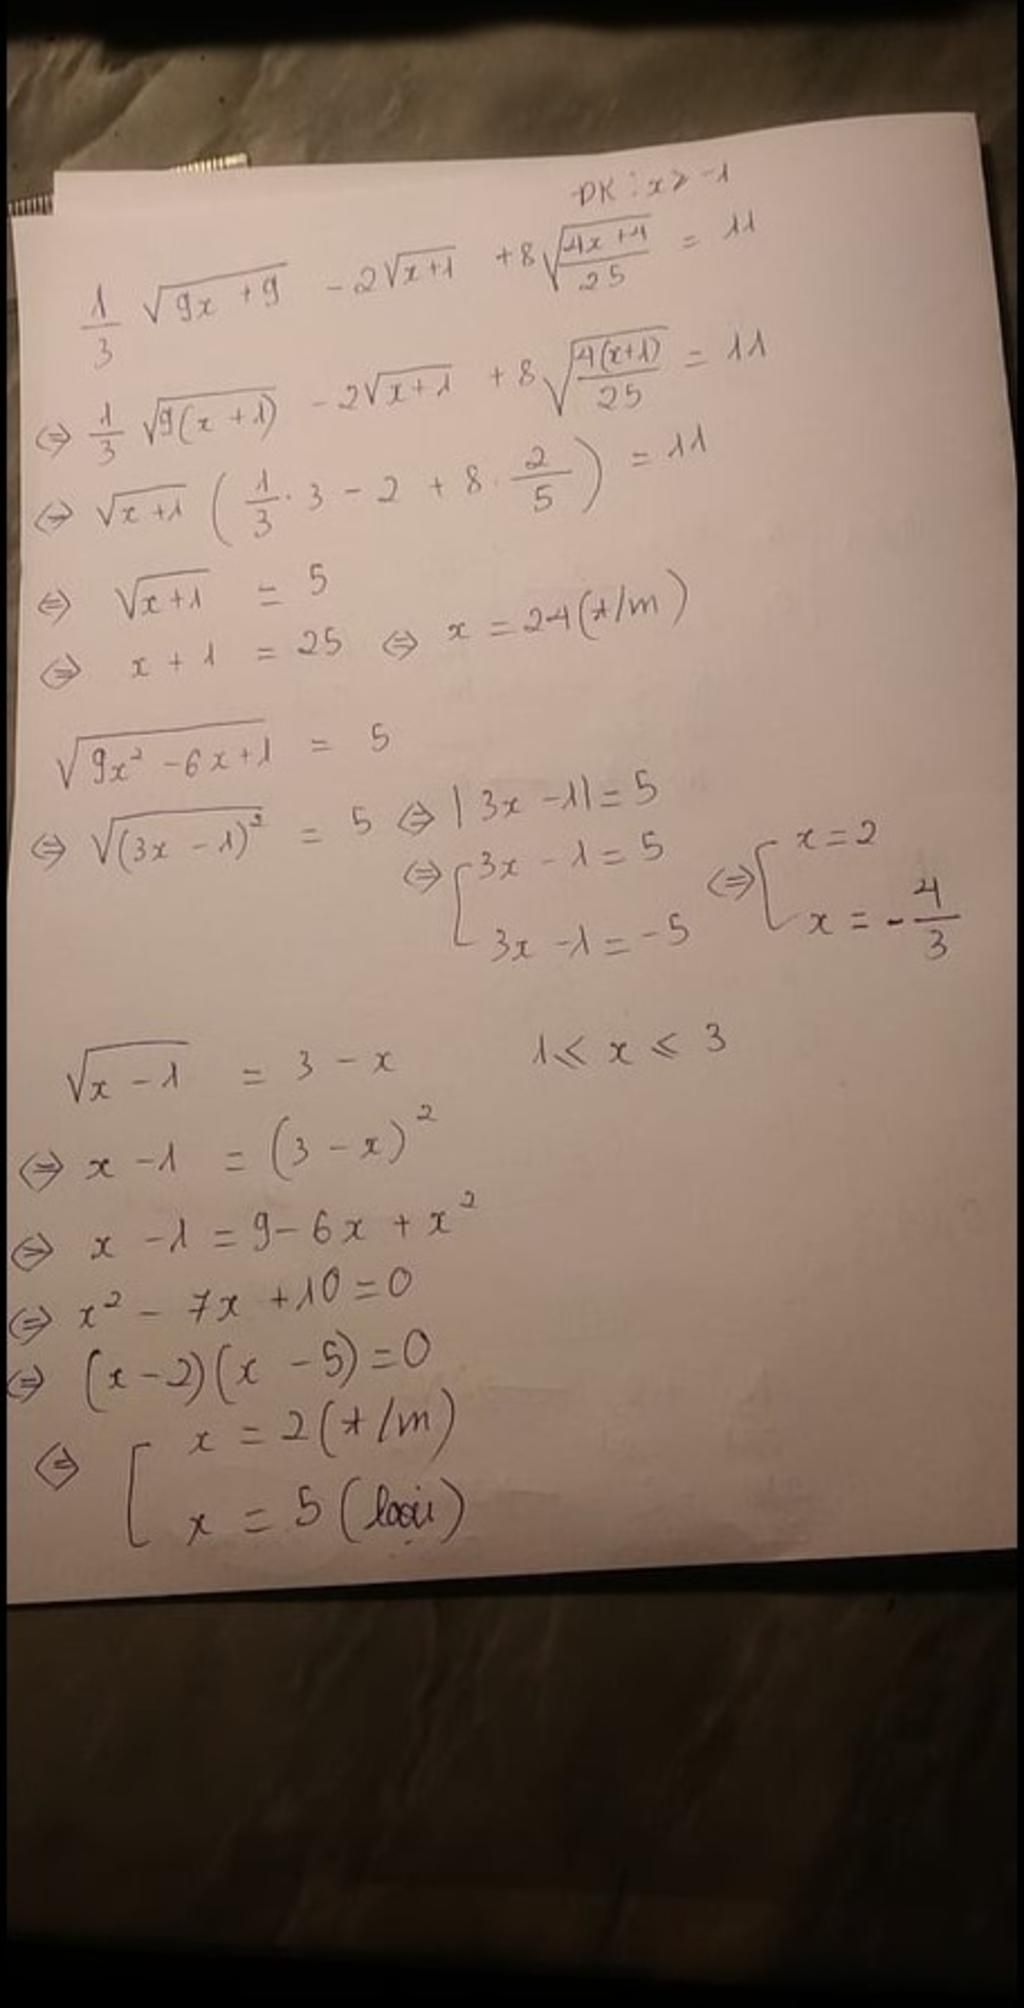 ĐK: x ≥ -1
1/3 √(9x + 9) - 2√(x+1) + 8√((4x+4)/25) = 11
⇔ 1/3 √(9(x+1)) - 2√(x+1) + 8√(4(x+1)/25) = 11
⇔ √(x+1) (1/3 · 3 - 2 + 8 · 2/5) = 11
⇔ √(x+1) = 5
⇔ x + 1 = 25 ⇔ x = 24 (t/m)
√(9x² - 6x + 1) = 5
⇔ √((3x - 1)²) = 5 ⇔ |3x - 1| = 5
⇔ [ 3x - 1 = 5 ⇔ [ x = 2
3x - 1 = -5 x = -4/3
√(x - 1) = 3 - x 1 ≤ x ≤ 3
⇔ x - 1 = (3 - x)²
⇔ x - 1 = 9 - 6x + x²
⇔ x² - 7x + 10 = 0
⇔ (x - 2)(x - 5) = 0
⇔ [ x = 2 (t/m)
x = 5 (loại)